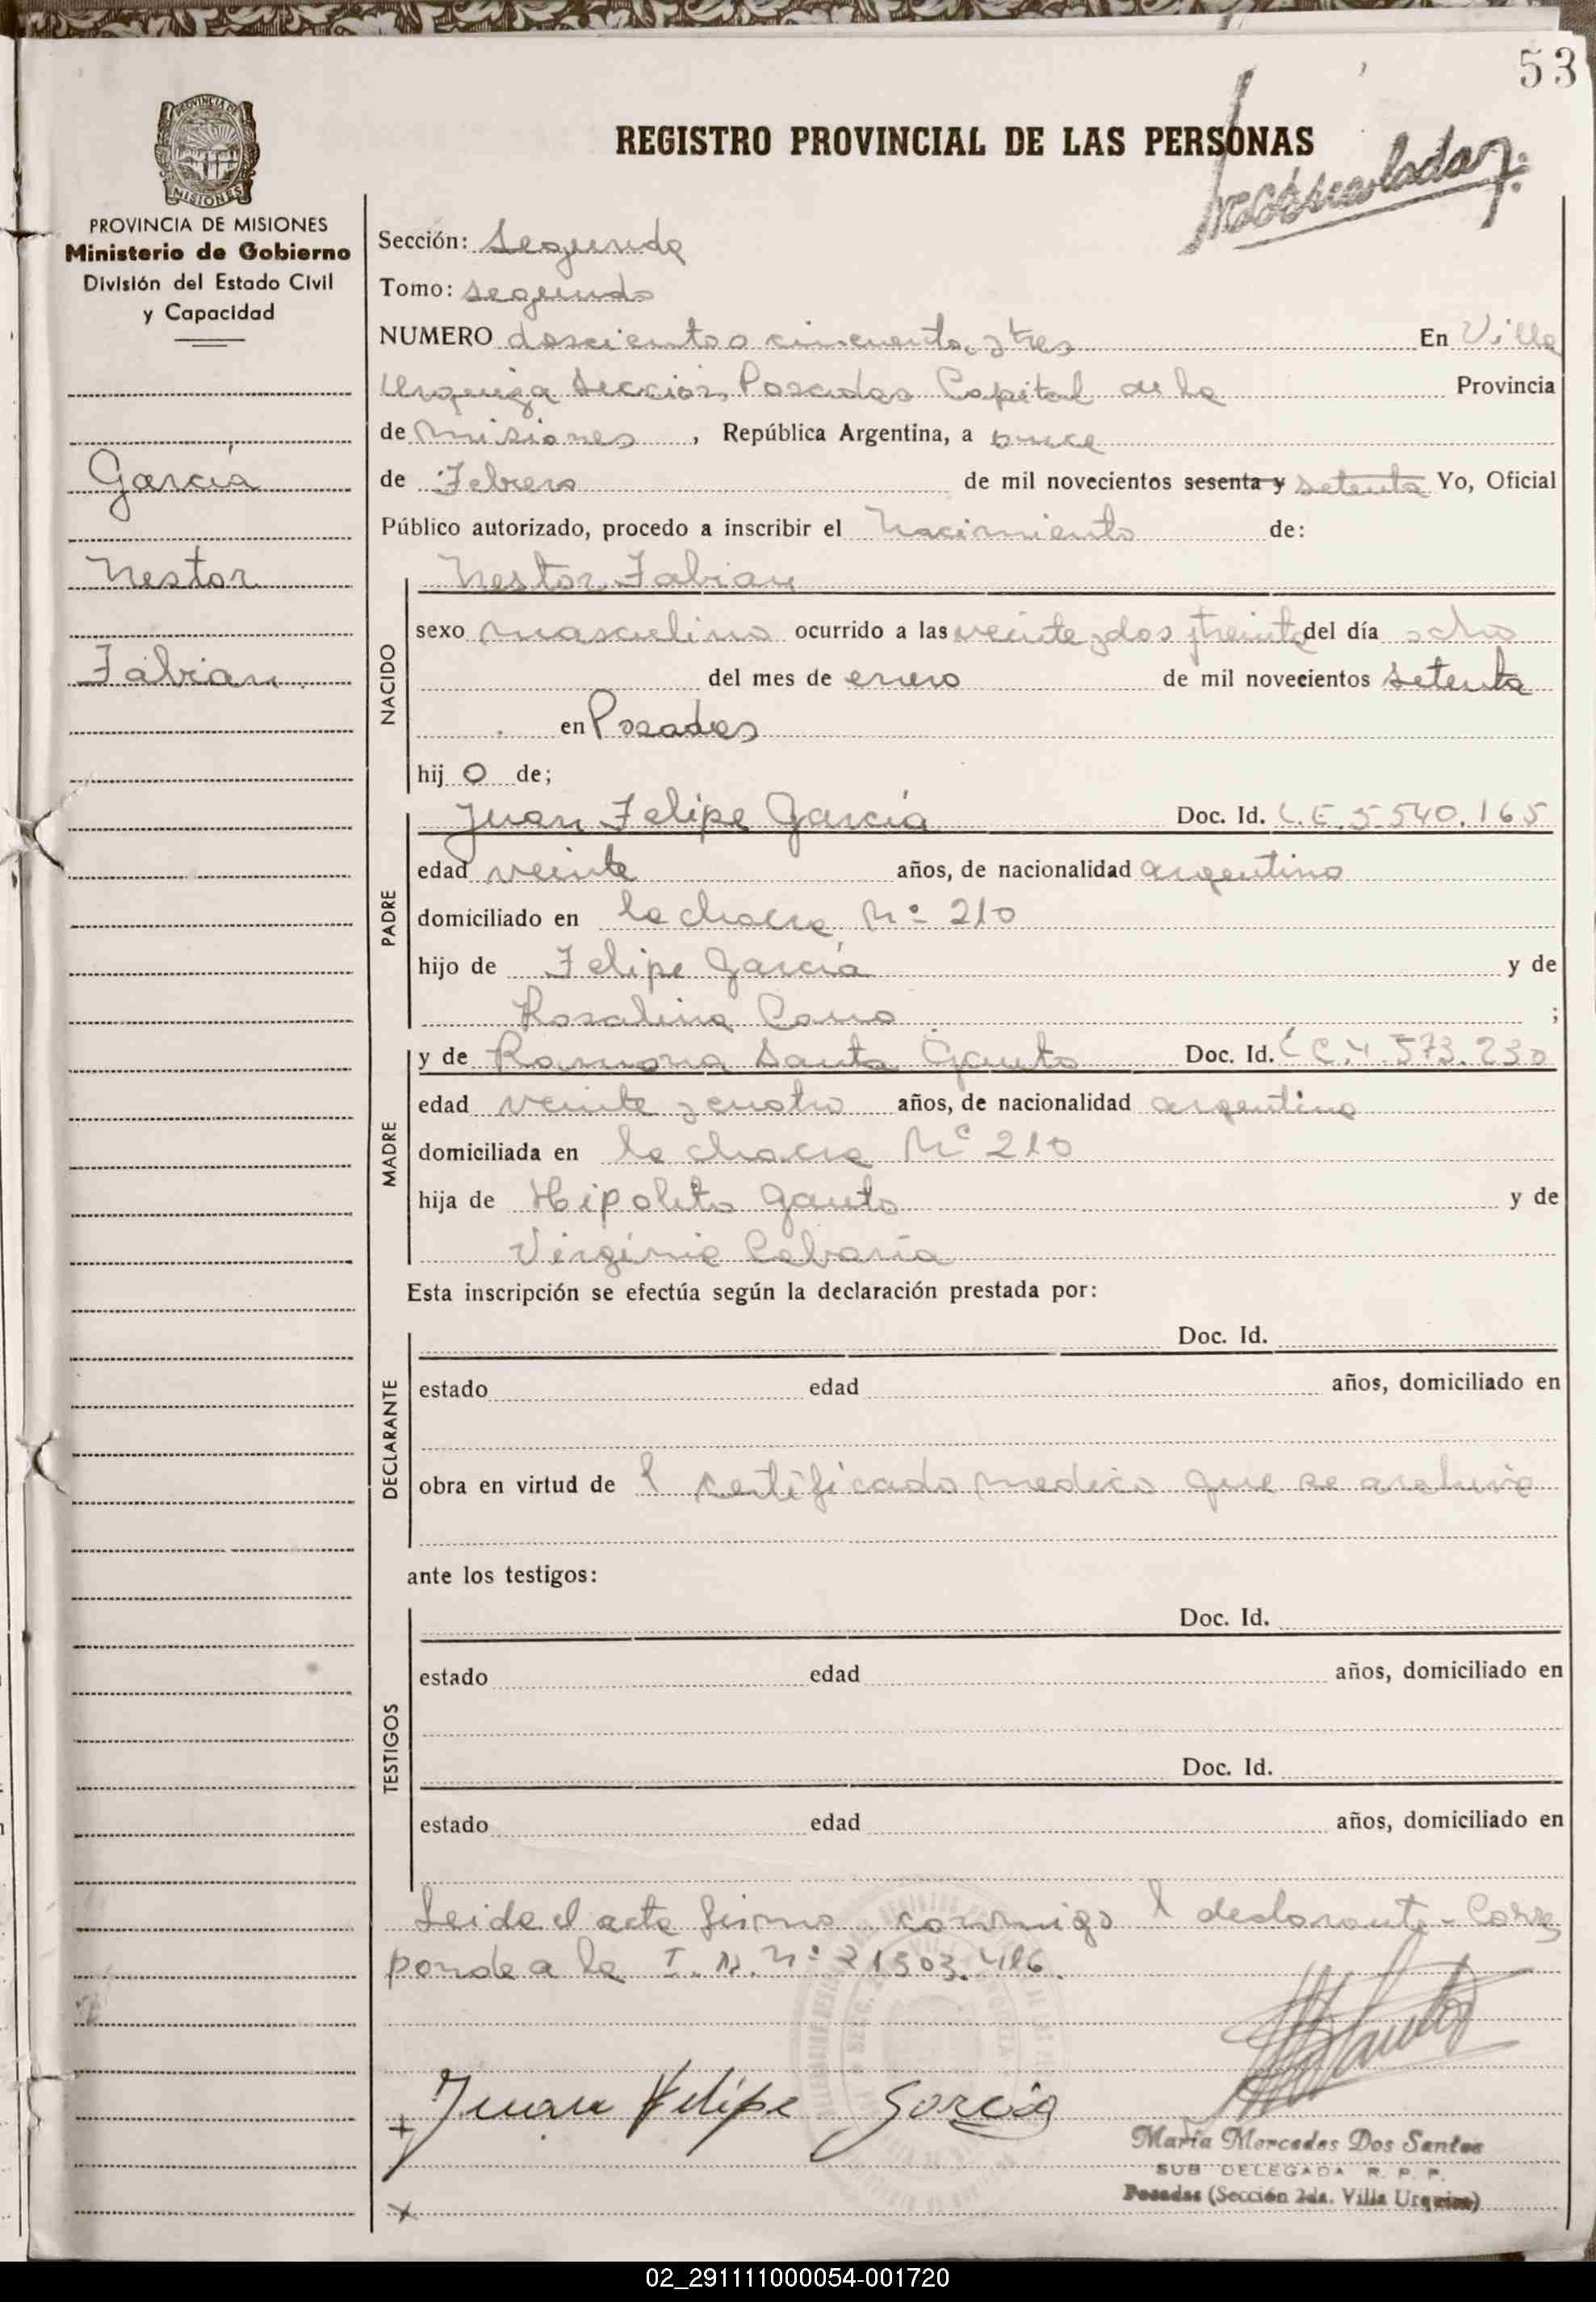 53
REGISTRO PROVINCIAL DE LAS PERSONAS
PROVINCIA DE
MISIONES
PROVINCIA DE MISIONES
Ministerio de Gobierno
División del Estado Civil
y Capacidad
García
Nestor
Fabian.
Sección: Segunda
Tomo: segundo
NUMERO doscientos cincuenta y tres En Villa
Urquiza Sección Posadas Capital de la Provincia
de Misiones, República Argentina, a once
de Febrero de mil novecientos sesenta y setenta Yo, Oficial
Público autorizado, procedo a inscribir el Nacimiento de:
NACIDO
Nestor Fabian
sexo masculino ocurrido a las veinte y dos y treinta del día ocho
del mes de enero de mil novecientos setenta
en Posadas
hij o de;
PADRE
Juan Felipe García Doc. Id. L.E. 5.540.165
edad veinte años, de nacionalidad argentino
domiciliado en la chacra Nº 210
hijo de Felipe García y de
Rosalina Cano ;
MADRE
y de Ramona Santa Gauto Doc. Id. L C. 4.573.230
edad veinte y cuatro años, de nacionalidad argentina
domiciliada en la chacra Nº 210
hija de Hipolito Gauto y de
Virginia Cabaria
Esta inscripción se efectúa según la declaración prestada por:
DECLARANTE
Doc. Id.
estado edad años, domiciliado en
obra en virtud de l certificado medico que se archiva
ante los testigos:
TESTIGOS
Doc. Id.
estado edad años, domiciliado en
Doc. Id.
estado edad años, domiciliado en
Leida el acta firma conmigo l declarante - Corres
ponde a la I. N. Nº 21303.416.
Juan Felipe Garcia
María Mercedes Dos Santos
SUB DELEGADA R. P. P.
Posadas (Sección 2da. Villa Urquiza)
02_291111000054-001720